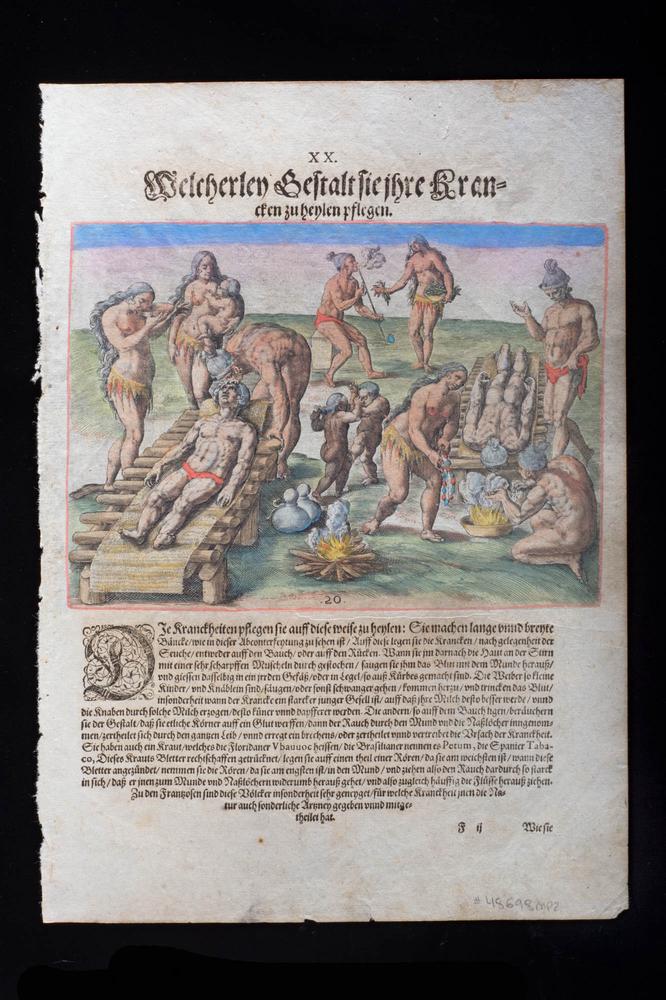 XX.
Welcherley Gestalt sie jhre Kran-
cken zu heylen pflegen.
.20.
DIe Kranckheiten pflegen sie auff diese weise zu heylen: Sie machen lange vnnd breyte
Bäncke/wie in dieser Abconterfeytung zu sehen ist/ Auff diese legen sie die Krancken/nach gelegenheit der
Seuche/entweder auff den Bauch/ oder auff den Rücken. Wann sie jm darnach die Haut an der Stirn
mit einer sehr scharpffen Muscheln durch gestochen/ saugen sie jhm das Blut mit dem Munde herauß/
vnd giessen dasselbig in ein jrden Gefäß/oder in Legel/so auß Kürbs gemacht sind. Die Weiber so kleine
Kinder/vnd Knäblein sind/säugen/oder sonst schwanger gehen/kommen herzu/vnd trincken das Blut/
insonderheit wann der Krancke ein starcker junger Gesell ist/auff daß jhre Milch desto besser werde/vnnd
die Knaben durch solche Milch erzogen/desto küner vnnd dapfferer werden. Die andern/so auff dem Bauch ligen/beräuchern
sie der Gestalt/daß sie etliche Körner auff ein Glut werffen/dann der Rauch durch den Mund vnd die Naßlöcher inngenom-
men/zertheilet sich durch den gantzen Leib/vnnd erregt ein brechens/oder zertheilet vnnd vertreibt die Vrsach der Kranckheit.
Sie haben auch ein Kraut/welches die Floridaner Vbauuoc heissen/die Brasilianer nennen es Petum, die Spanier Taba-
co, Dieses Krauts Bletter rechtschaffen getrücknet/legen sie auff einen theil einer Rören/da sie am weichsten ist/wann diese
Bletter angezündet/nemmen sie die Rören/da sie am engsten ist/in den Mund/vnd ziehen also den Rauch dardurch so starck
in sich/daß er jnen zum Munde vnd Naßlöchern widerumb herauß gehet/vnd also zugleich häuffig die Flüsse herauß ziehen.
Zu den Frantzosen sind diese Völcker insonderheit sehr geneyget/für welche Kranckheit jnen die Na-
tur auch sonderliche Artzney gegeben vnnd mitge-
theilet hat.
F ij Wie sie
#48698MP2